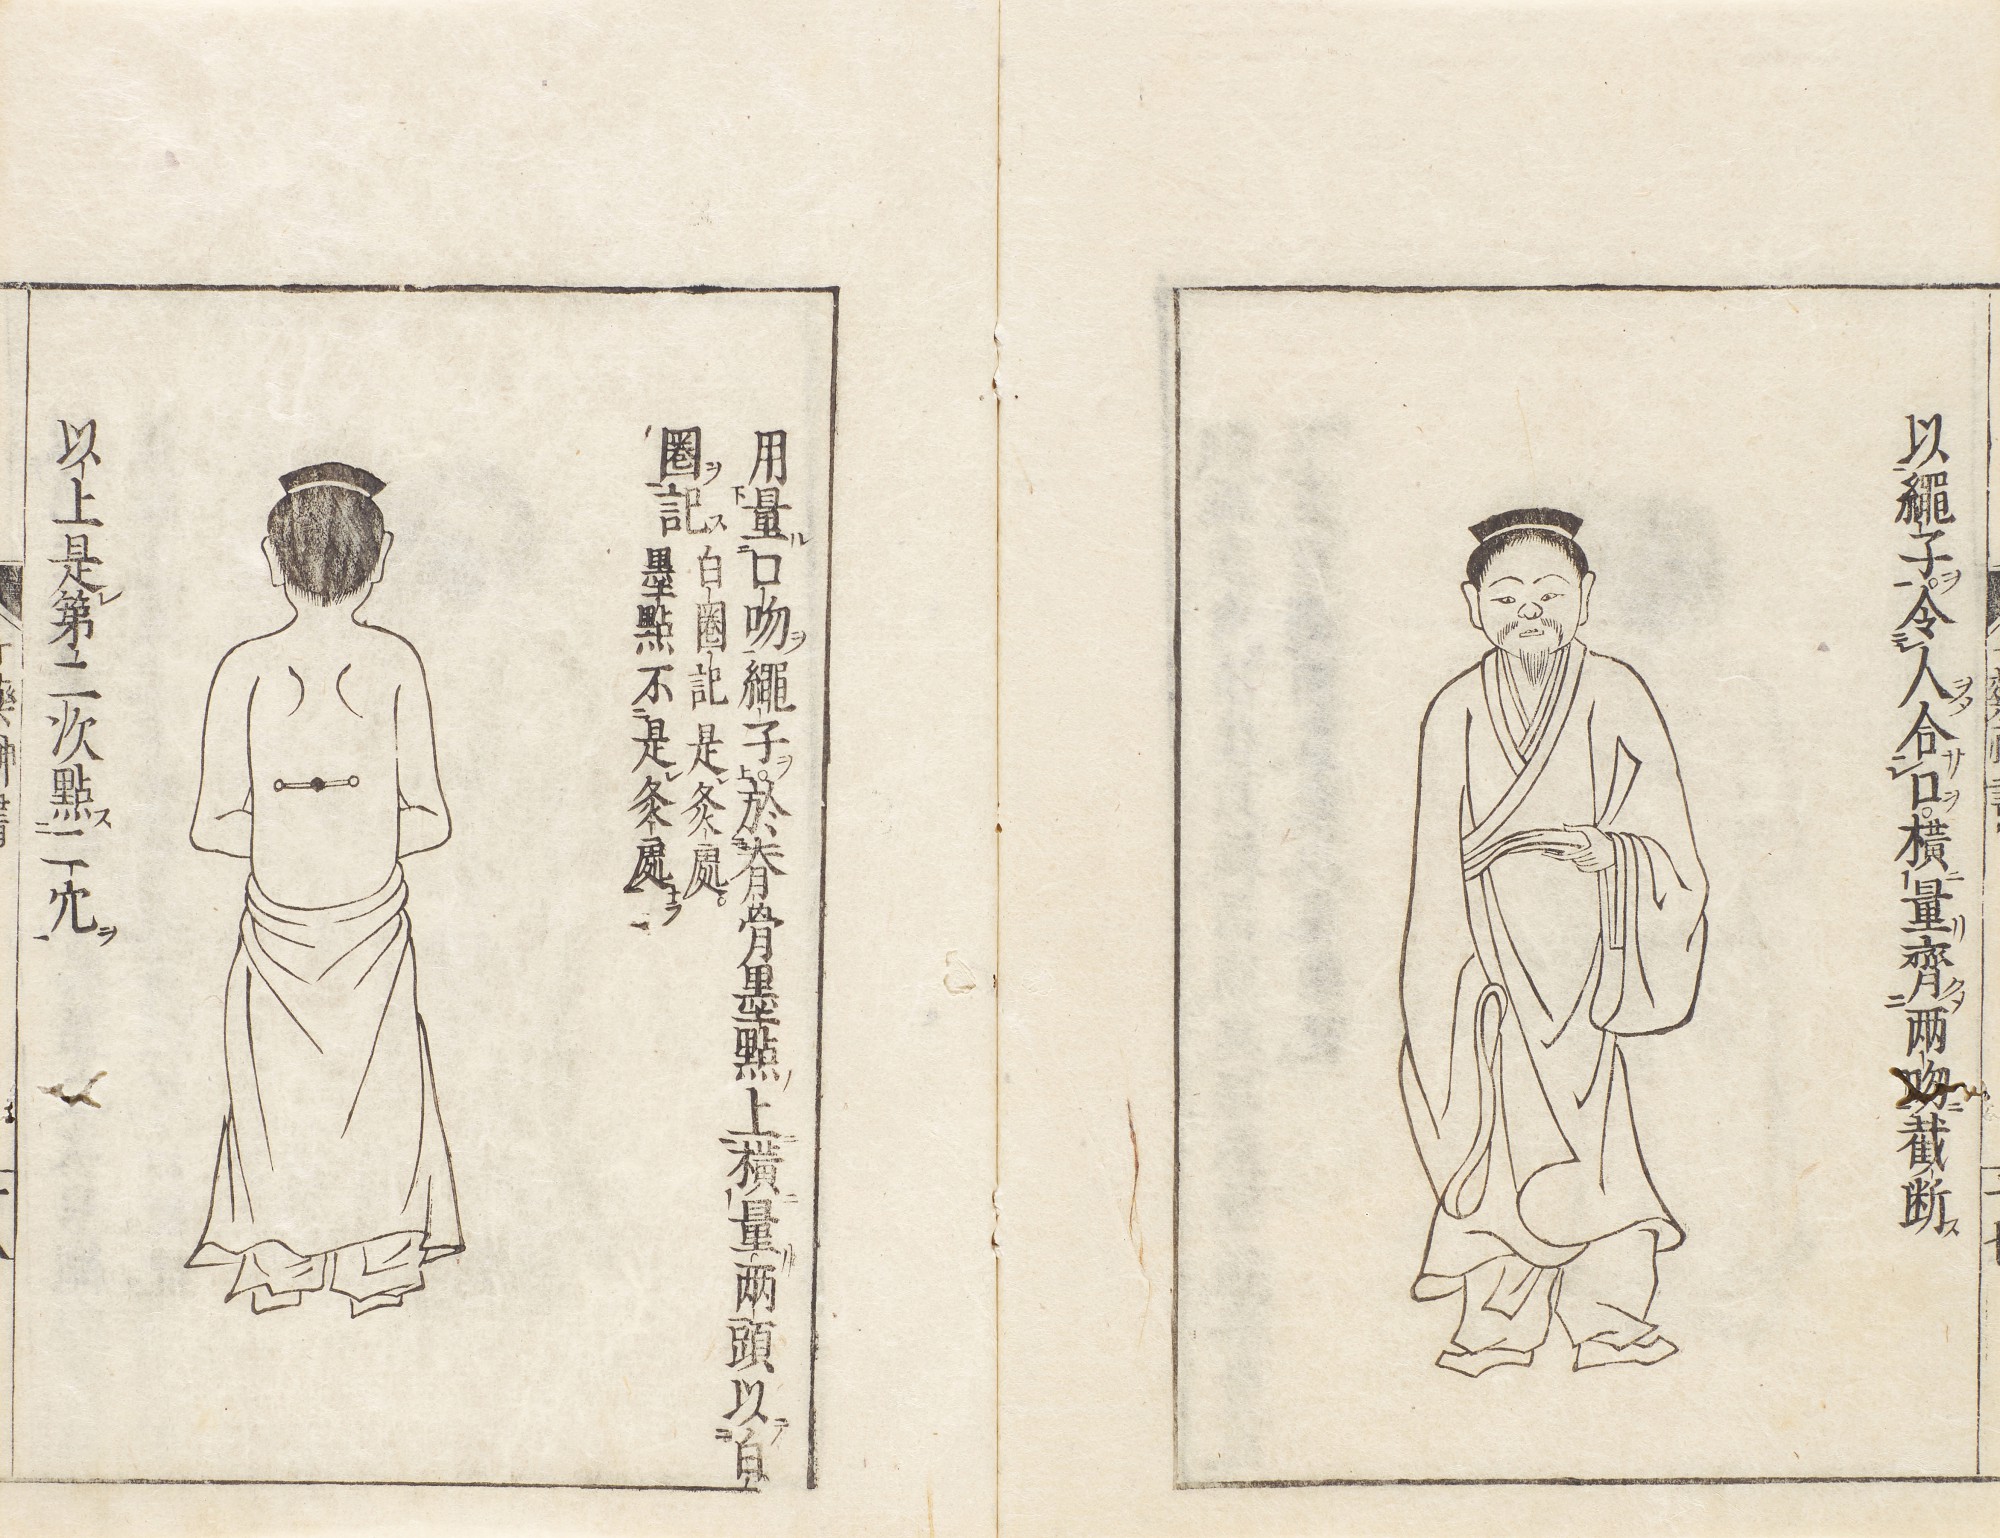 以繩子令人合口橫量齊両吻截断
用量口吻繩子於脊骨墨點上橫量両頭以白
圏記
白圏記是灸處
墨點不是灸處
以上是第二次點二穴